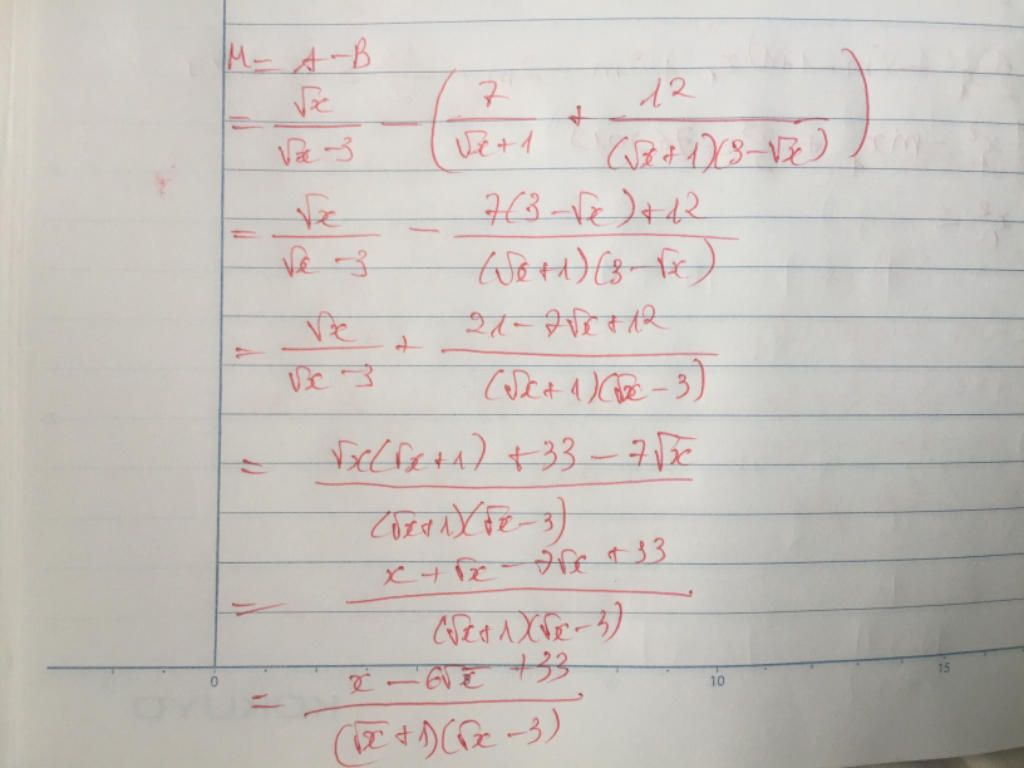 M = A - B
= √x / (√x - 3) - ( 7 / (√x + 1) + 12 / ((√x + 1)(3 - √x)) )
= √x / (√x - 3) - (7(3 - √x) + 12) / ((√x + 1)(3 - √x))
= √x / (√x - 3) + (21 - 7√x + 12) / ((√x + 1)(√x - 3))
= (√x(√x + 1) + 33 - 7√x) / ((√x + 1)(√x - 3))
= (x + √x - 7√x + 33) / ((√x + 1)(√x - 3))
= (x - 6√x + 33) / ((√x + 1)(√x - 3))
0 10 15